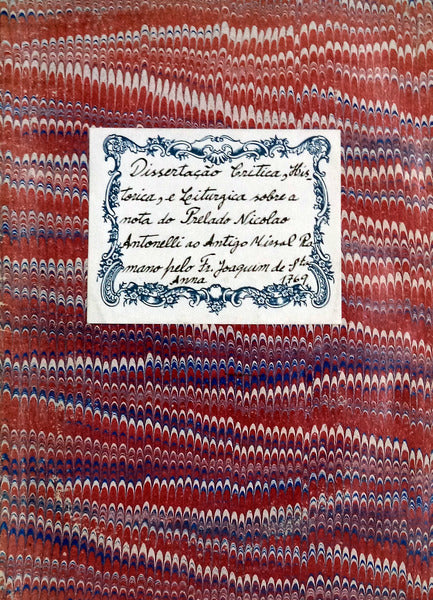 Dissertação Critica, His
torica, e Liturgica sobre a
nota do Prelado Nicolao
Antonelli ao Antigo Missal Ro
mano pelo Fr. Joaquim de Sta
Anna 1769